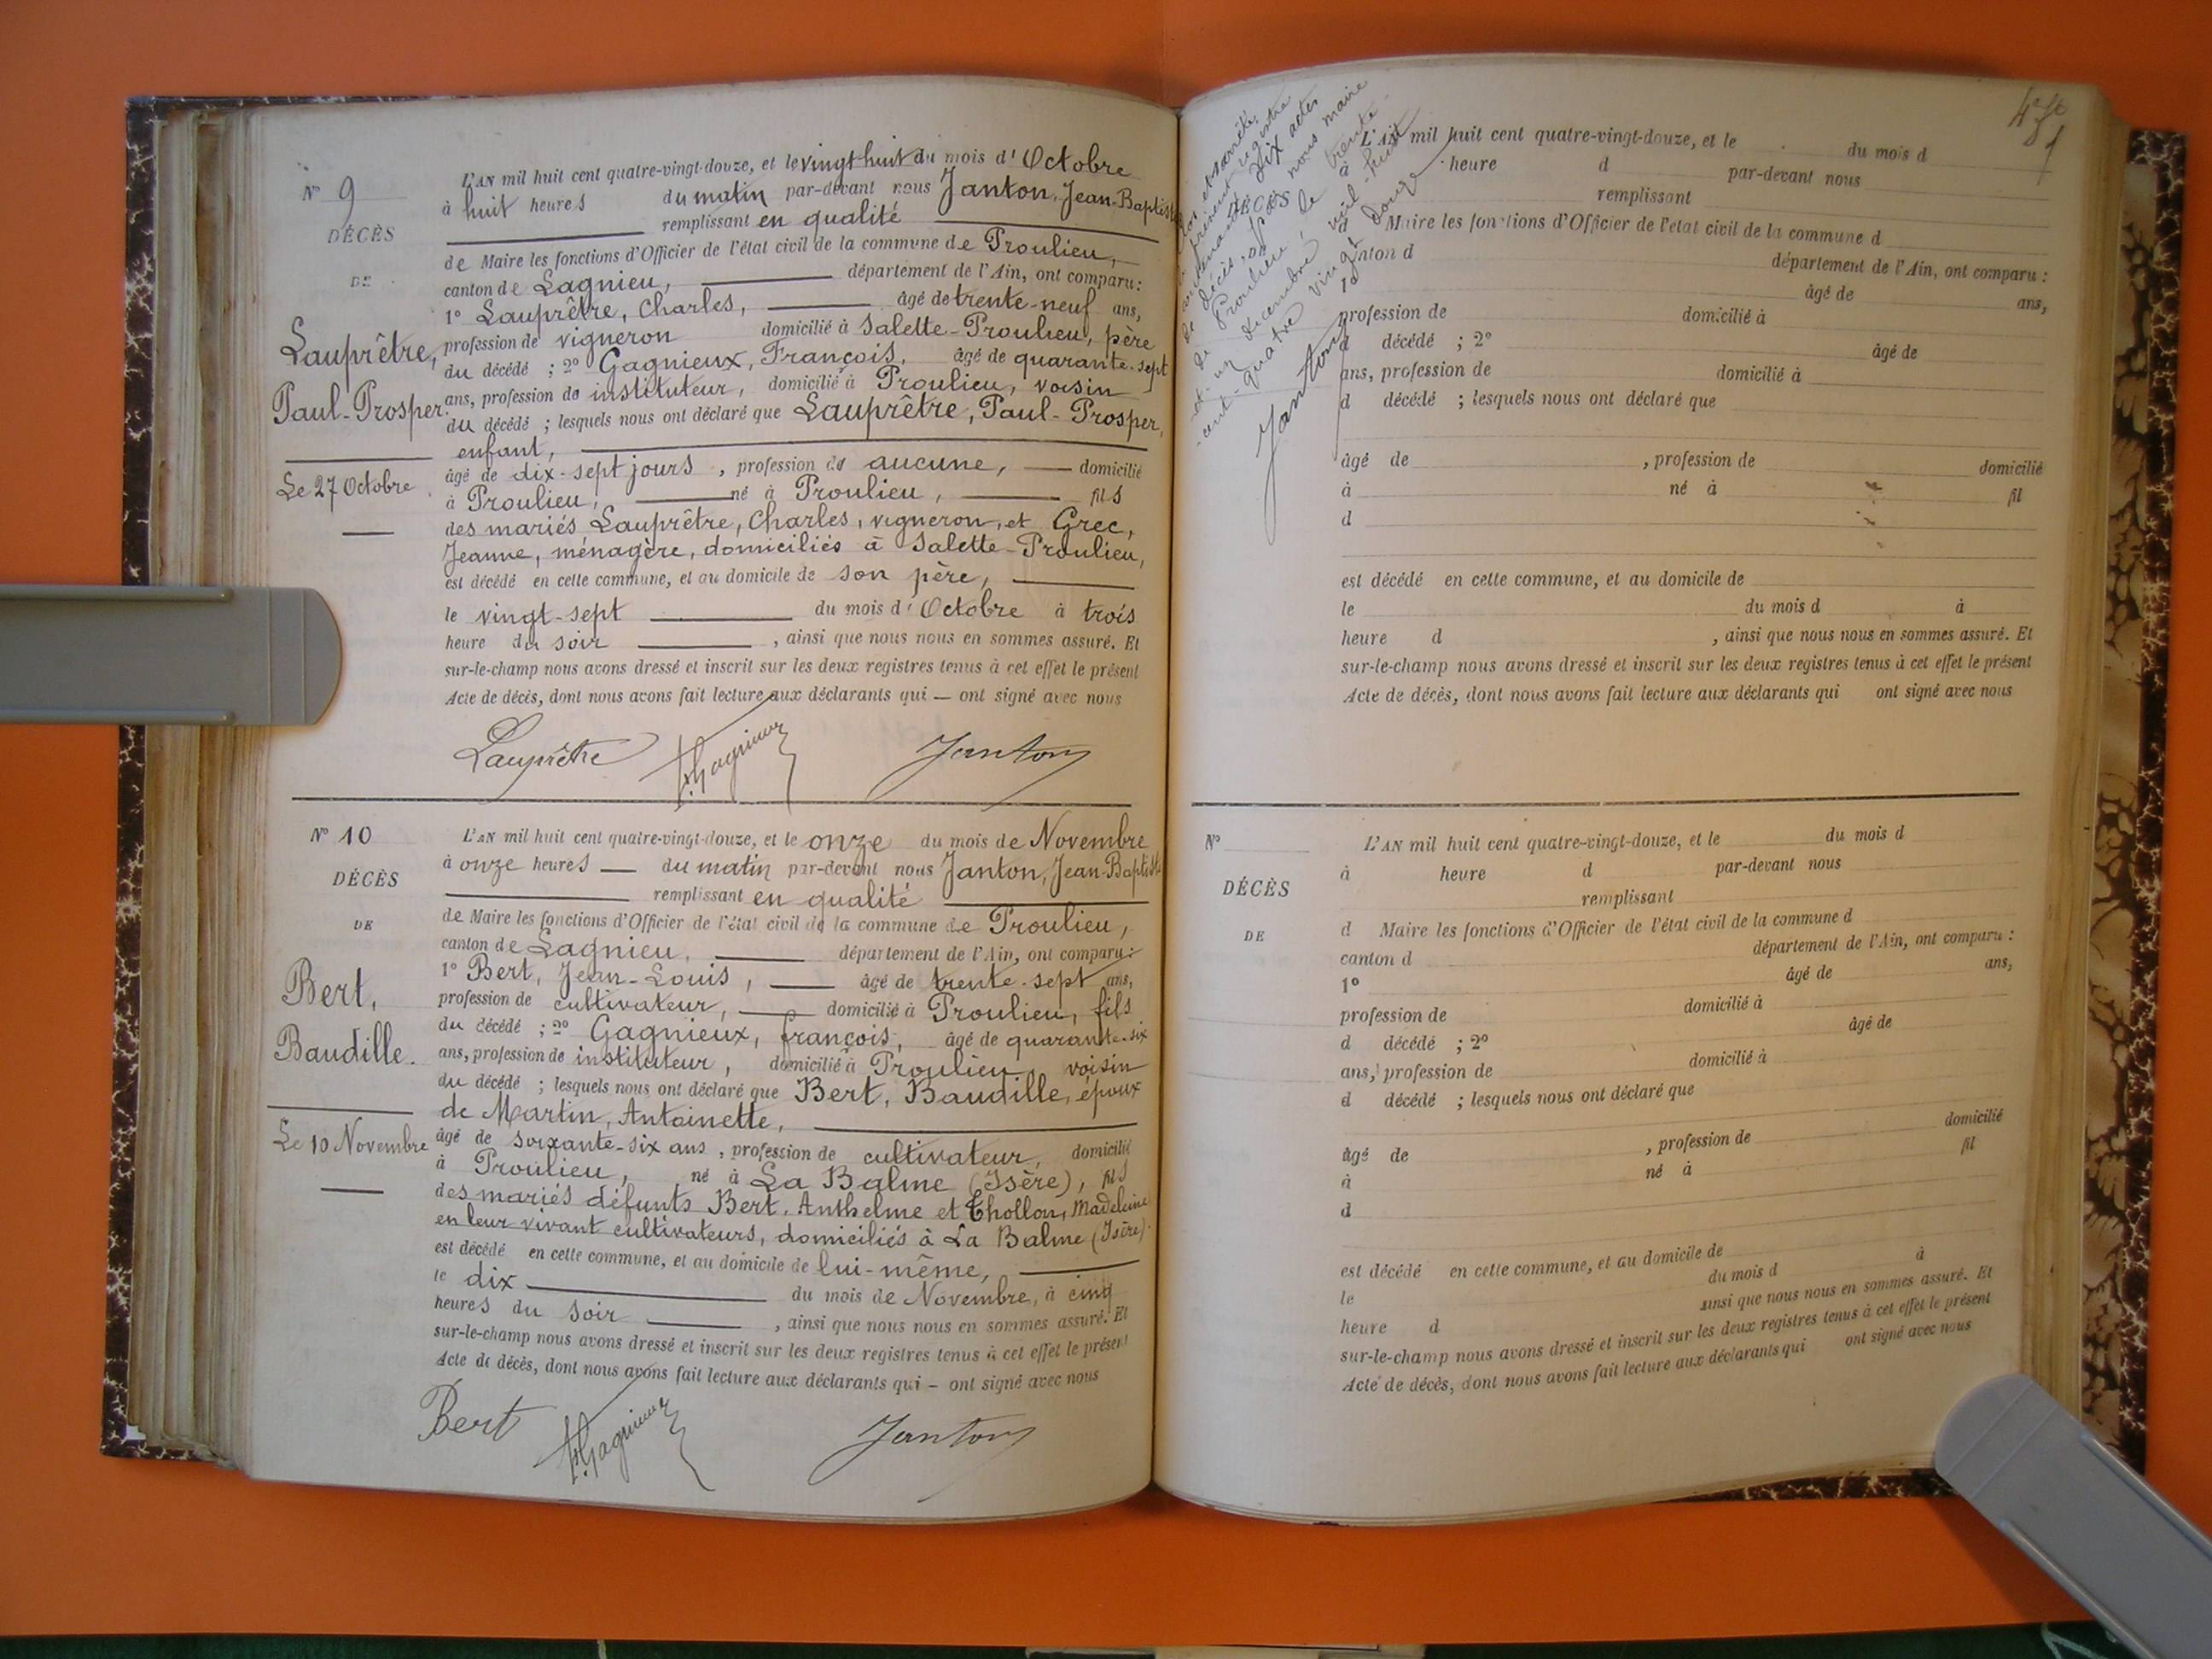 N° 9
DÉCÈS
DE
Lauprêtre,
Paul-Prosper.
Le 27 Octobre
L'AN mil huit cent quatre-vingt-douze, et le vingt-huit du mois d'Octobre
à huit heures du matin par-devant nous Janton, Jean-Baptiste
remplissant en qualité
de Maire les fonctions d'Officier de l'état civil de la commune de Proulieu,
canton de Lagnieu, département de l'Ain, ont comparu:
1° Lauprêtre, Charles, âgé de trente-neuf ans,
profession de vigneron domicilié à Salette-Proulieu, père
du décédé ; 2° Gagnieux, François, âgé de quarante-sept
ans, profession de instituteur, domicilié à Proulieu, voisin
du décédé ; lesquels nous ont déclaré que Lauprêtre, Paul-Prosper,
enfant,
âgé de dix-sept jours, profession de aucune, domicilié
à Proulieu, né à Proulieu, fils
des mariés Lauprêtre, Charles, vigneron, et Grec,
Jeanne, ménagère, domiciliés à Salette-Proulieu,
est décédé en cette commune, et au domicile de son père,
le vingt-sept du mois d'Octobre à trois
heure du soir, ainsi que nous nous en sommes assuré. Et
sur-le-champ nous avons dressé et inscrit sur les deux registres tenus à cet effet le présent
Acte de décès, dont nous avons fait lecture aux déclarants qui — ont signé avec nous
Lauprêtre F. Gagnieux Janton
N° 10
DÉCÈS
DE
Bert,
Baudille.
Le 10 Novembre
L'AN mil huit cent quatre-vingt-douze, et le onze du mois de Novembre
à onze heures — du matin par-devant nous Janton, Jean-Baptiste
remplissant en qualité
de Maire les fonctions d'Officier de l'état civil de la commune de Proulieu,
canton de Lagnieu, département de l'Ain, ont comparu:
1° Bert, Jean-Louis, âgé de trente-sept ans,
profession de cultivateur, domicilié à Proulieu, fils
du décédé ; 2° Gagnieux, françois, âgé de quarante-six
ans, profession de instituteur, domicilié à Proulieu, voisin
du décédé ; lesquels nous ont déclaré que Bert, Baudille, époux
de Martin, Antoinette,
âgé de soixante-six ans, profession de cultivateur, domicilié
à Proulieu, né à La Balme (Isère), fils
des mariés défunts Bert, Anthelme et Thollon, Madeleine
en leur vivant cultivateurs, domiciliés à La Balme (Isère).
est décédé en cette commune, et au domicile de lui-même,
le dix du mois de Novembre, à cinq
heures du soir, ainsi que nous nous en sommes assuré. Et
sur-le-champ nous avons dressé et inscrit sur les deux registres tenus à cet effet le présent
Acte de décès, dont nous avons fait lecture aux déclarants qui — ont signé avec nous
Bert F. Gagnieux Janton
Clos et arrêté
le présent registre
dix actes
de décès, par nous maire
de Proulieu, le trente
et un décembre mil-huit
cent-quatre vingt douze
Janton
DÉCÈS
L'AN mil huit cent quatre-vingt-douze, et le du mois d
à heure d par-devant nous
remplissant
d Maire les fonctions d'Officier de l'état civil de la commune d
canton d département de l'Ain, ont comparu :
1° âgé de ans,
profession de domicilié à
d décédé ; 2° âgé de
ans, profession de domicilié à
d décédé ; lesquels nous ont déclaré que
âgé de , profession de domicilié
à né à fil
d
est décédé en cette commune, et au domicile de
le du mois d à
heure d , ainsi que nous nous en sommes assuré. Et
sur-le-champ nous avons dressé et inscrit sur les deux registres tenus à cet effet le présent
Acte de décès, dont nous avons fait lecture aux déclarants qui ont signé avec nous
N°
DÉCÈS
DE
L'AN mil huit cent quatre-vingt-douze, et le du mois d
à heure d par-devant nous
remplissant
d Maire les fonctions d'Officier de l'état civil de la commune d
canton d département de l'Ain, ont comparu :
1° âgé de ans,
profession de domicilié à
d décédé ; 2° âgé de
ans, profession de domicilié à
d décédé ; lesquels nous ont déclaré que
âgé de , profession de domicilié
à né à fil
d
est décédé en cette commune, et au domicile de
le du mois d à
heure d ainsi que nous nous en sommes assuré. Et
sur-le-champ nous avons dressé et inscrit sur les deux registres tenus à cet effet le présent
Acte de décès, dont nous avons fait lecture aux déclarants qui ont signé avec nous